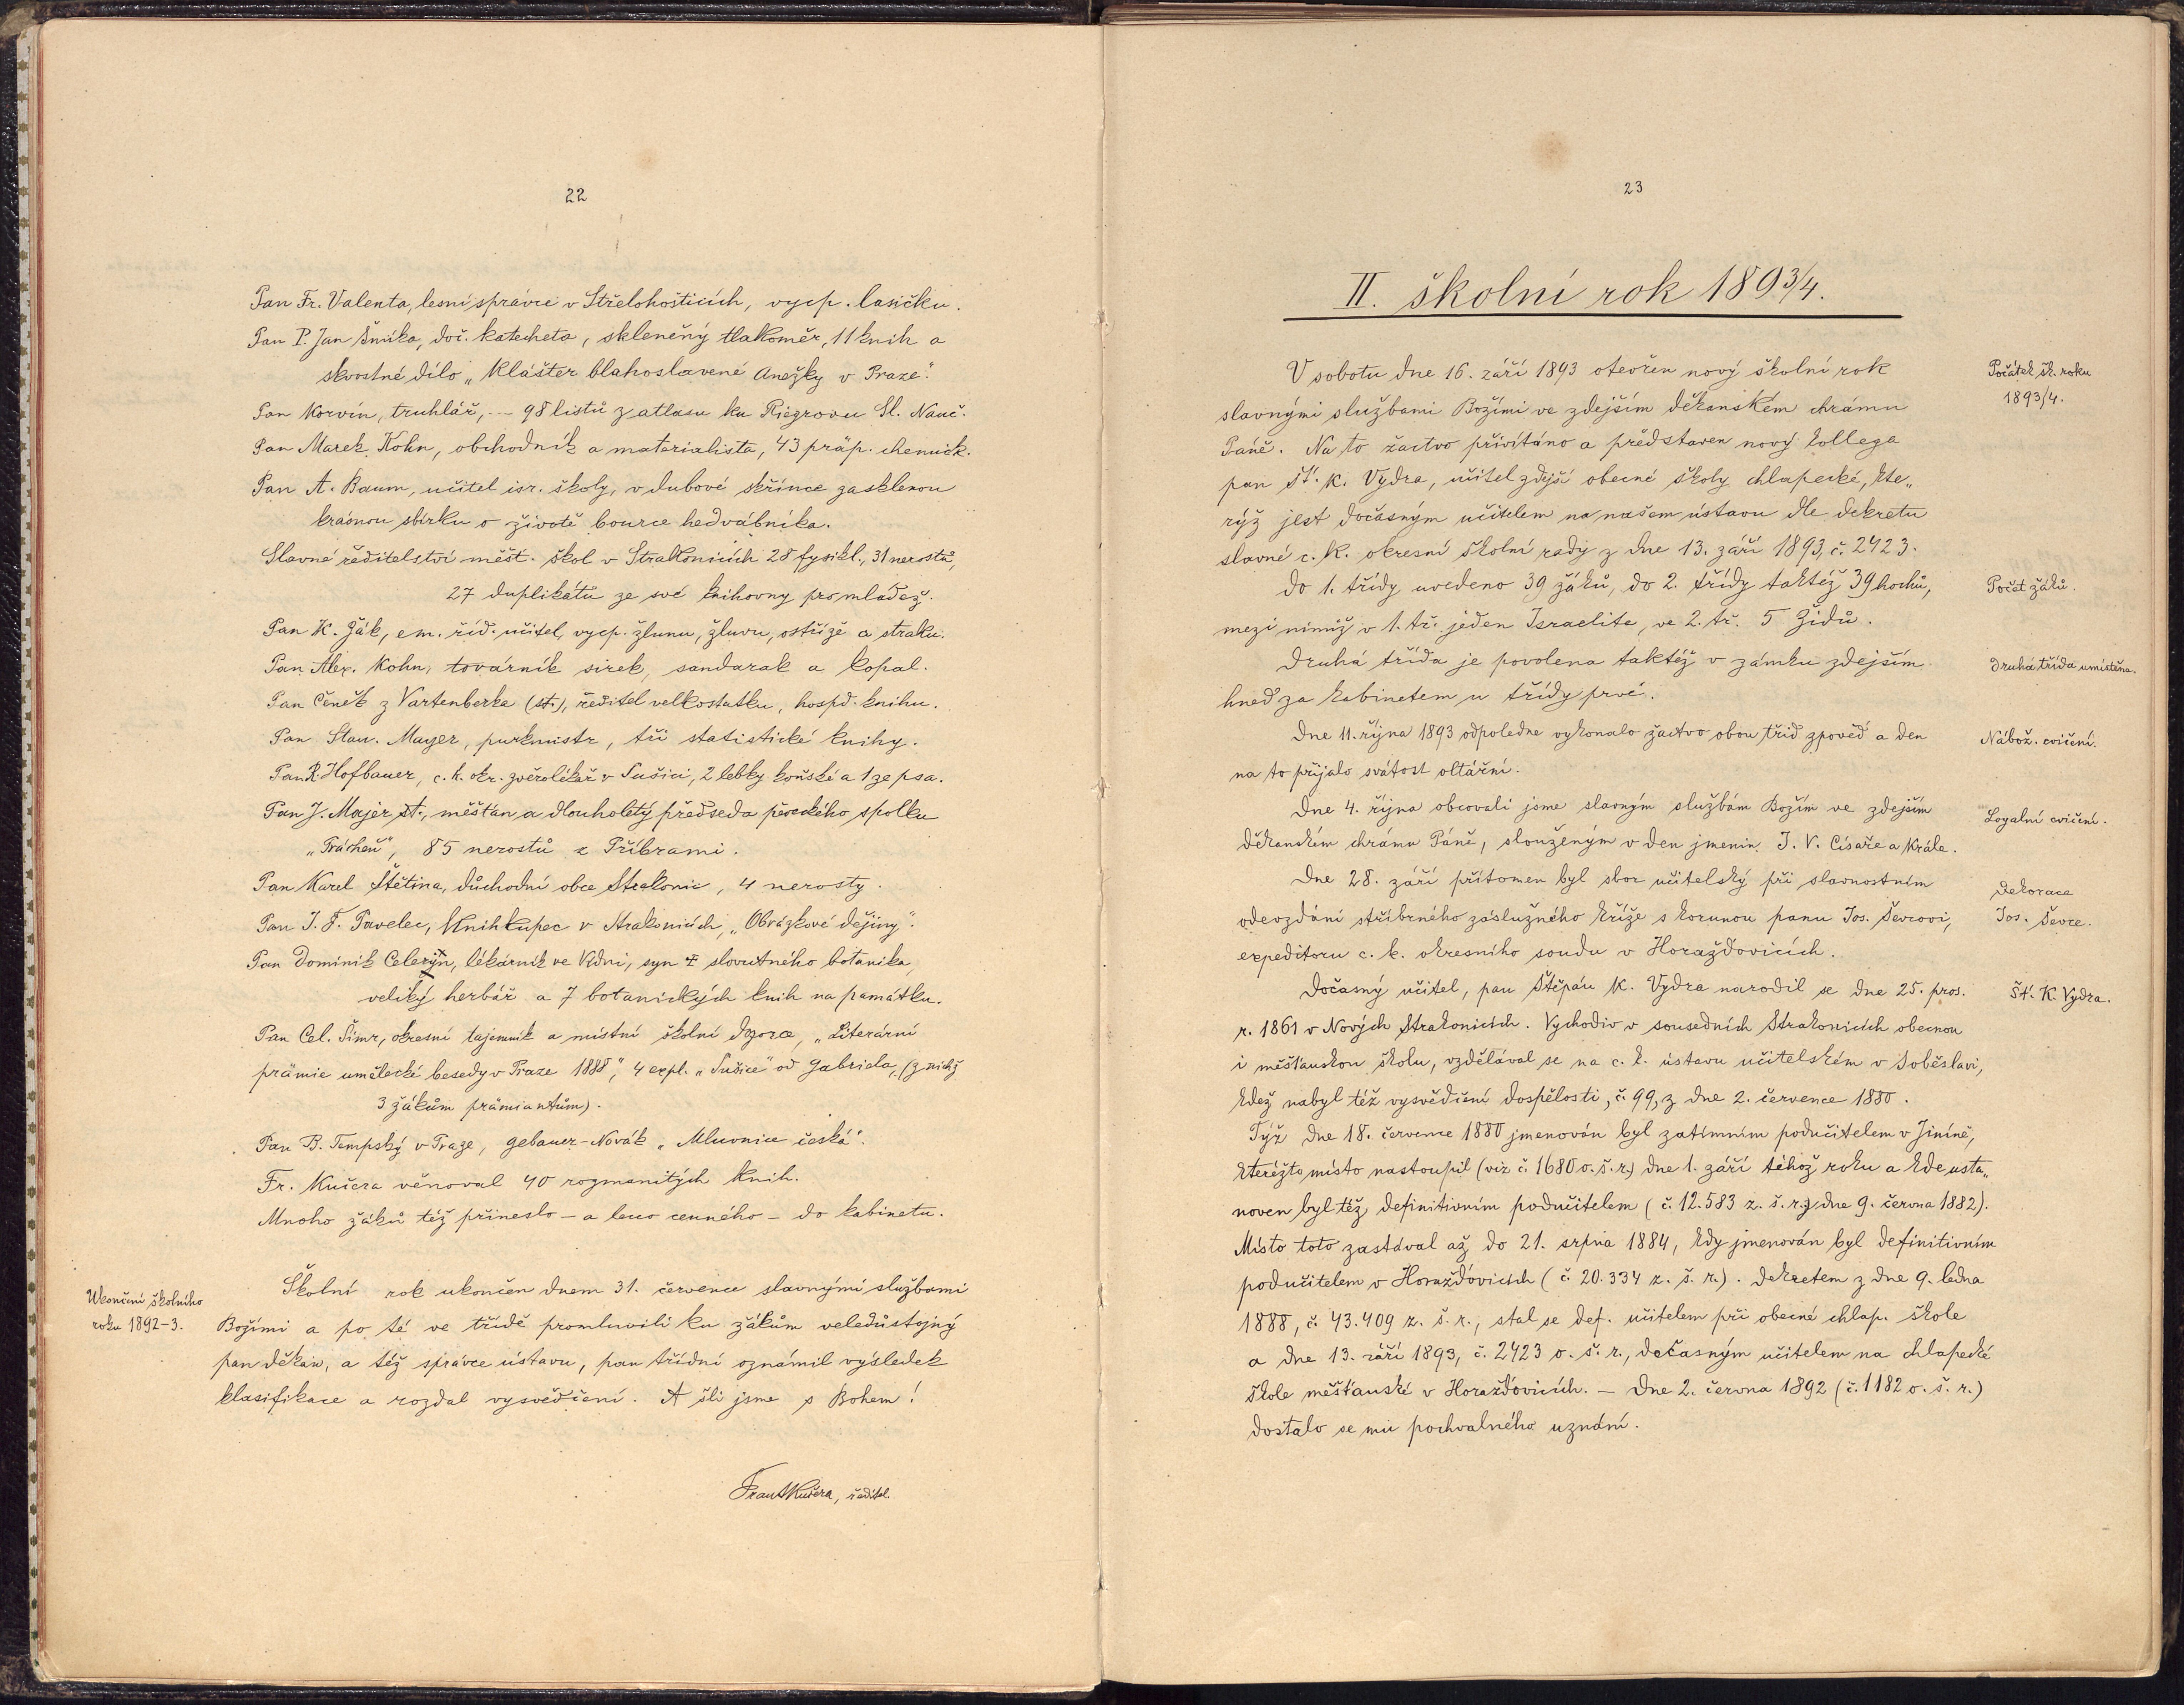 22
Pan Fr. Valenta, lesní správce v Střelohošticích, vycp. lasičku.
Pan P. Jan Šmíka, doč. katecheta, skleněný tlakoměr, 11 knih a
skvostné dílo „Klášter blahoslavené Anežky v Praze“.
Pan Korvín, truhlář, -- 98 listů z atlasu ku Riegrovu Sl. Nauč.
Pan Marek Kohn, obchodník a materialista, 43 präp. chemick.
Pan A. Baum, učitel isr. školy, v dubové skřínce zasklenou
krásnou sbírku o životě bource hedvábníka.
Slavné ředitelství měšt. škol v Strakonicích 28 fysikl., 31 nerostů,
27 duplikátů ze své knihovny pro mládež.
Pan K. Žák, em. říd. učitel, vycp. žlunu, žluvu, ostříže a straku.
Pan Alex. Kohn, továrník sirek, sandarak a kopal.
Pan Čeněk z Vartenberka (st.), ředitel velkostatku, hospd. knihu.
Pan Stan. Mayer, purkmistr, tři statistické knihy.
Pan R. Hofbauer, c. k. okr. zvěrolékař v Sušici, 2 lebky koňské a 1 ze psa.
Pan J. Majer st., měšťan a dlouholetý předseda pěveckého spolku
„Prácheň“, 85 nerostů z Příbrami.
Pan Karel Štětina, důchodní obce Strakonic, 4 nerosty.
Pan J. F. Pavelec, knihkupec v Strakonicích, „Obrázkové dějiny“.
Pan Dominik Celerýn, lékárník ve Vídni, syn † slovutného botanika,
veliký herbář a 7 botanických knih na památku.
Pan Cel. Šimr, okresní tajemník a místní školní dozorce, „Literární
prämie umělecké besedy v Praze 1888“, 4 expl. „Sušice“ od Gabriela, (z nichž
3 žákům prämiantům).
Pan B. Tempský v Praze, Gebauer-Novák „Mluvnice česká“.
Fr. Kučera věnoval 40 rozmanitých knih.
Mnoho žáků též přineslo – a leco cenného – do kabinetu.
Ukončení školního
roku 1892-3.
Školní rok ukončen dnem 31. července slavnými službami
Božími a po té ve třídě promluvili ku žákům veledůstojný
pan děkan, a též správce ústavu, pan třídní oznámil výsledek
klasifikace a rozdal vysvědčení. A šli jsme s Bohem!
Frant Kučera, ředitel.
23
II. školní rok 1893/4.
V sobotu dne 16. září 1893 otevřen nový školní rok
Počátek šk. roku
1893/4.
slavnými službami Božími ve zdejším děkanském chrámu
Páně. Na to žactvo přivítáno a představen nový kollega
pan Št. K. Vydra, učitel zdejší obecné školy chlapecké, kte„
rýž jest dočasným učitelem na našem ústavu dle dekretu
slavné c. k. okresní školní rady z dne 13. září 1893, č. 2423.
Do 1. třídy uvedeno 39 žáků, do 2. třídy taktéž 39 hochů,
Počet žáků.
mezi nimiž v 1. tř. jeden Israelite, ve 2. tř. 5 Židů.
Druhá třída je povolena taktéž v zámku zdejším
Druhá třída umístěna.
hned za kabinetem u třídy prvé.
Dne 11. října 1893 odpoledne vykonalo žactvo obou tříd zpověď a den
Nábož. cvičení.
na to přijalo svátost oltářní.
Dne 4. října obcovali jsme slavným službám Božím ve zdejším
Loyalní cvičení.
děkanském chrámu Páně, slouženým v den jmenin J. V. Císaře a Krále.
Dne 28. září přítomen byl sbor učitelský při slavnostním
Dekorace
Jos. Ševce.
odevzdání stříbrného záslužného kříže s korunou panu Jos. Ševcovi,
expeditoru c. k. okresního soudu v Horažďovicích.
Dočasný učitel, pan Štěpán K. Vydra narodil se dne 25. pros.
Št. K. Vydra.
r. 1861 v Nových Strakonicích. Vychodiv v sousedních Strakonicích obecnou
i měšťanskou školu, vzdělával se na c. k. ústavu učitelském v Soběslavi,
kdež nabyl též vysvědčení dospělosti, č. 99, z dne 2. července 1880.
Týž dne 18. července 1880 jmenován byl zatímním podučitelem v Jiníně,
kteréžto místo nastoupil (viz č. 1680 o. š. r.) dne 1. září téhož roku a kde usta„
noven byl též definitivním podučitelem (č. 12.583 z. š. r. z dne 9. června 1882).
Místo toto zastával až do 21. srpna 1884, kdy jmenován byl definitivním
podučitelem v Horažďovicích (č. 20.334 z. š. r.). Dekretem z dne 9. ledna
1888, č. 43.409 z. š. r., stal se def. učitelem při obecné chlap. škole
a dne 13. září 1893, č. 2423 o. š. r., dočasným učitelem na chlapecké
škole měšťanské v Horažďovicích. – Dne 2. června 1892 (č. 1182 o. š. r.)
dostalo se mu pochvalného uznání.